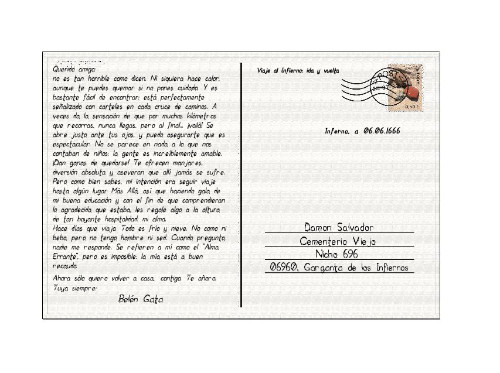 Querido amigo:
no es tan horrible como dicen. Ni siquiera hace calor,
aunque te puedes quemar si no pones cuidado. Y es
bastante fácil de encontrar: está perfectamente
señalizado con carteles en cada cruce de caminos. A
veces da la sensación de que por muchos kilómetros
que recorras, nunca llegas, pero al final... ¡voilà! Se
abre justo ante tus ojos, y puedo asegurarte que es
espectacular. No se parece en nada a lo que nos
contaban de niños: la gente es increíblemente amable.
¡Dan ganas de quedarse! Te ofrecen manjares,
diversión absoluta y aseveran que allí jamás se sufre.
Pero como bien sabes, mi intención era seguir viaje
hasta algún lugar Más Allá, así que haciendo gala de
mi buena educación y con el fin de que comprendieran
lo agradecida que estaba, les regalé algo a la altura
de tan boyante hospitalidad: mi alma.
Hace días que viajo. Todo es frío y nieva. No como ni
bebo, pero no tengo hambre ni sed. Cuando pregunto,
nadie me responde. Se refieren a mí como el "Alma
Errante", pero es imposible: la mía está a buen
recaudo.
Ahora sólo quiero volver a casa, contigo. Te añoro.
Tuya siempre:
Belén Gata
Viaje al Infierno: ida y vuelta
Infierno, a 06.06.1666
Damon Salvador
Cementerio Viejo
Nicho 696
06960, Garganta de los Infiernos